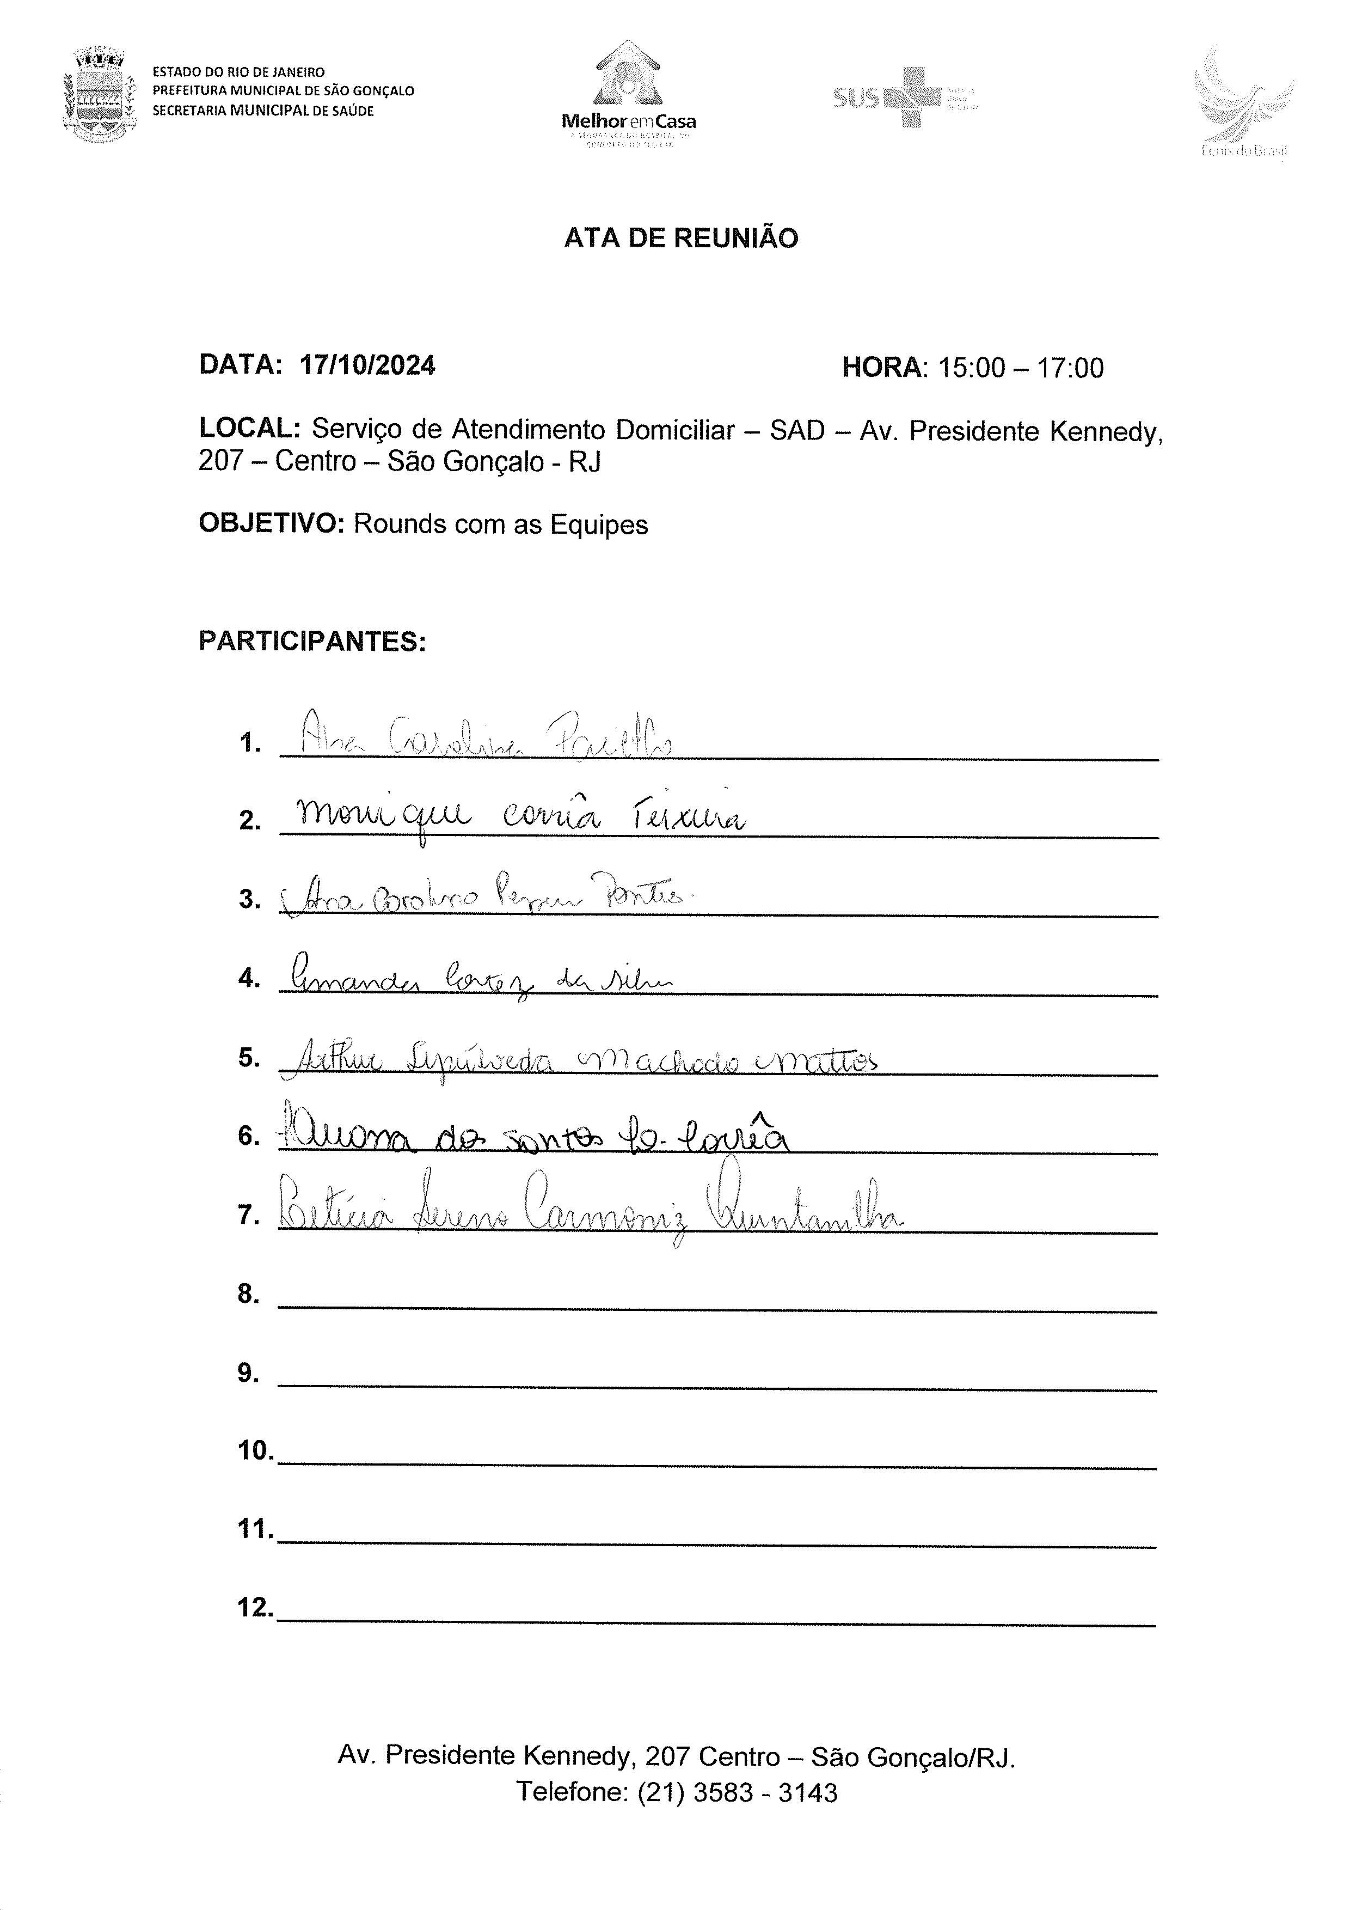 ESTADO DO RIO DE JANEIRO
PREFEITURA MUNICIPAL DE SÃO GONÇALO
SECRETARIA MUNICIPAL DE SAÚDE
Melhor em Casa
SUS
ATA DE REUNIÃO
DATA: 17/10/2024 HORA: 15:00 – 17:00
LOCAL: Serviço de Atendimento Domiciliar – SAD – Av. Presidente Kennedy,
207 – Centro – São Gonçalo - RJ
OBJETIVO: Rounds com as Equipes
PARTICIPANTES:
1. Ana Carolina
2. Monique Corrêa Teixeira
3. Ana Carolina Pontes
4. Amanda Cortez da Silva
5. Arthur Sepúlveda Machado Mattos
6. dos Santos Corrêa
7. Letícia Sereno Carmoniz Quintanilha
8.
9.
10.
11.
12.
Av. Presidente Kennedy, 207 Centro – São Gonçalo/RJ.
Telefone: (21) 3583 - 3143